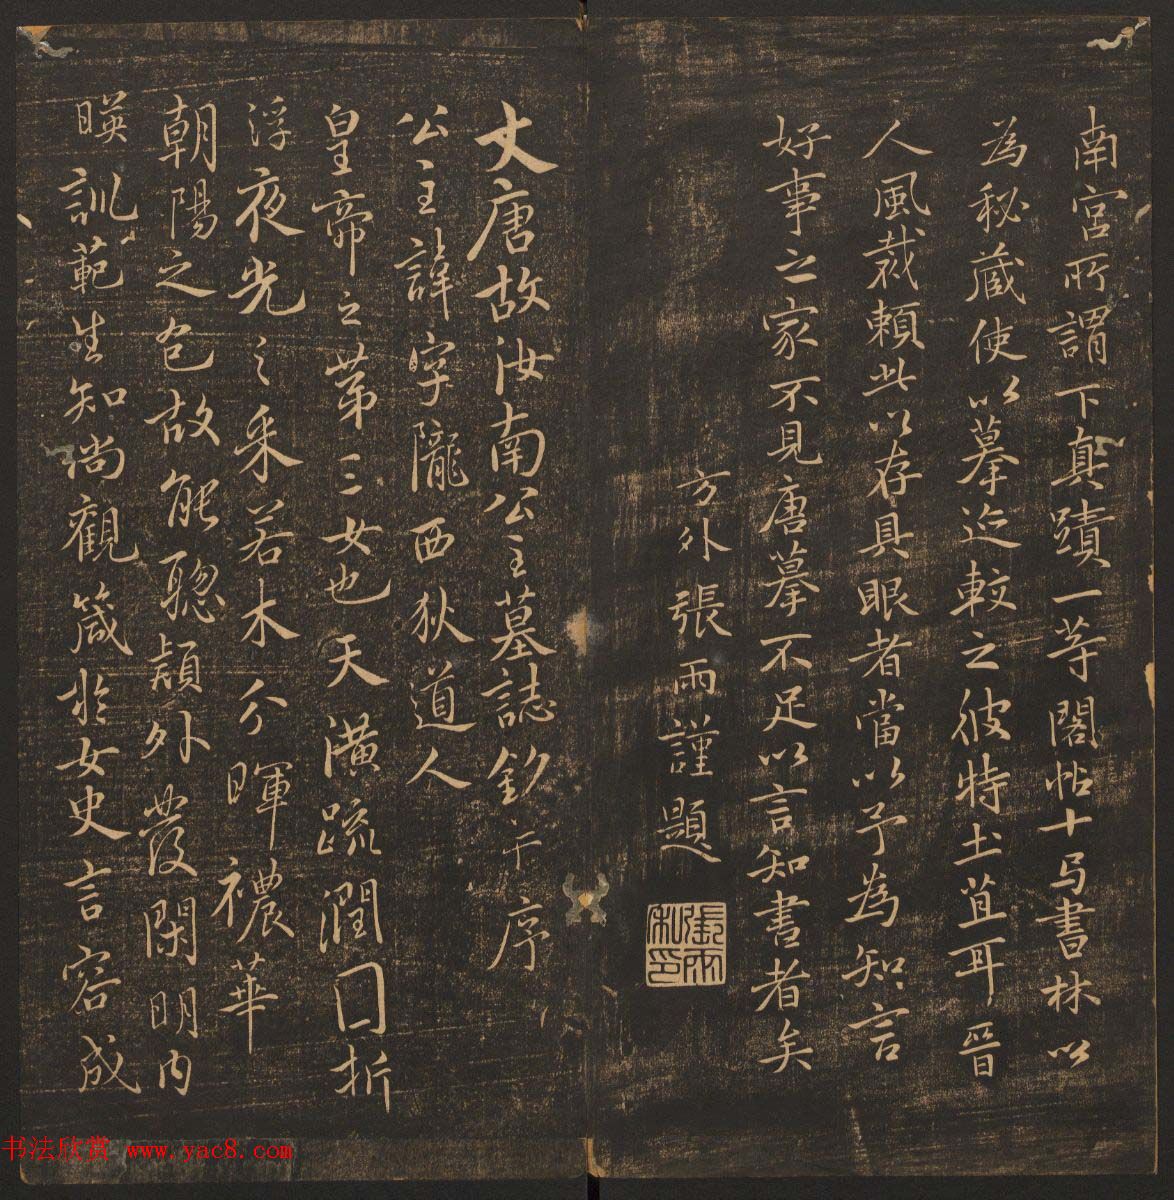 南宮所謂下真蹟一等閣帖十与書林以
為秘藏使以摹迹較之彼特土苴耳晉
人風裁賴此以存具眼者當以予為知言
好事之家不見唐摹不足以言知書者矣
方外張雨謹題
張雨私印
大唐故汝南公主墓誌銘并序
公主諱字隴西狄道人
皇帝之第三女也天潢疏潤圓折
浮夜光之采若木分暉穠華
朝陽之色故能聰穎外發閑明內
暎訓範生知尚觀箴於女史言容成
书法欣赏 www.yac8.com